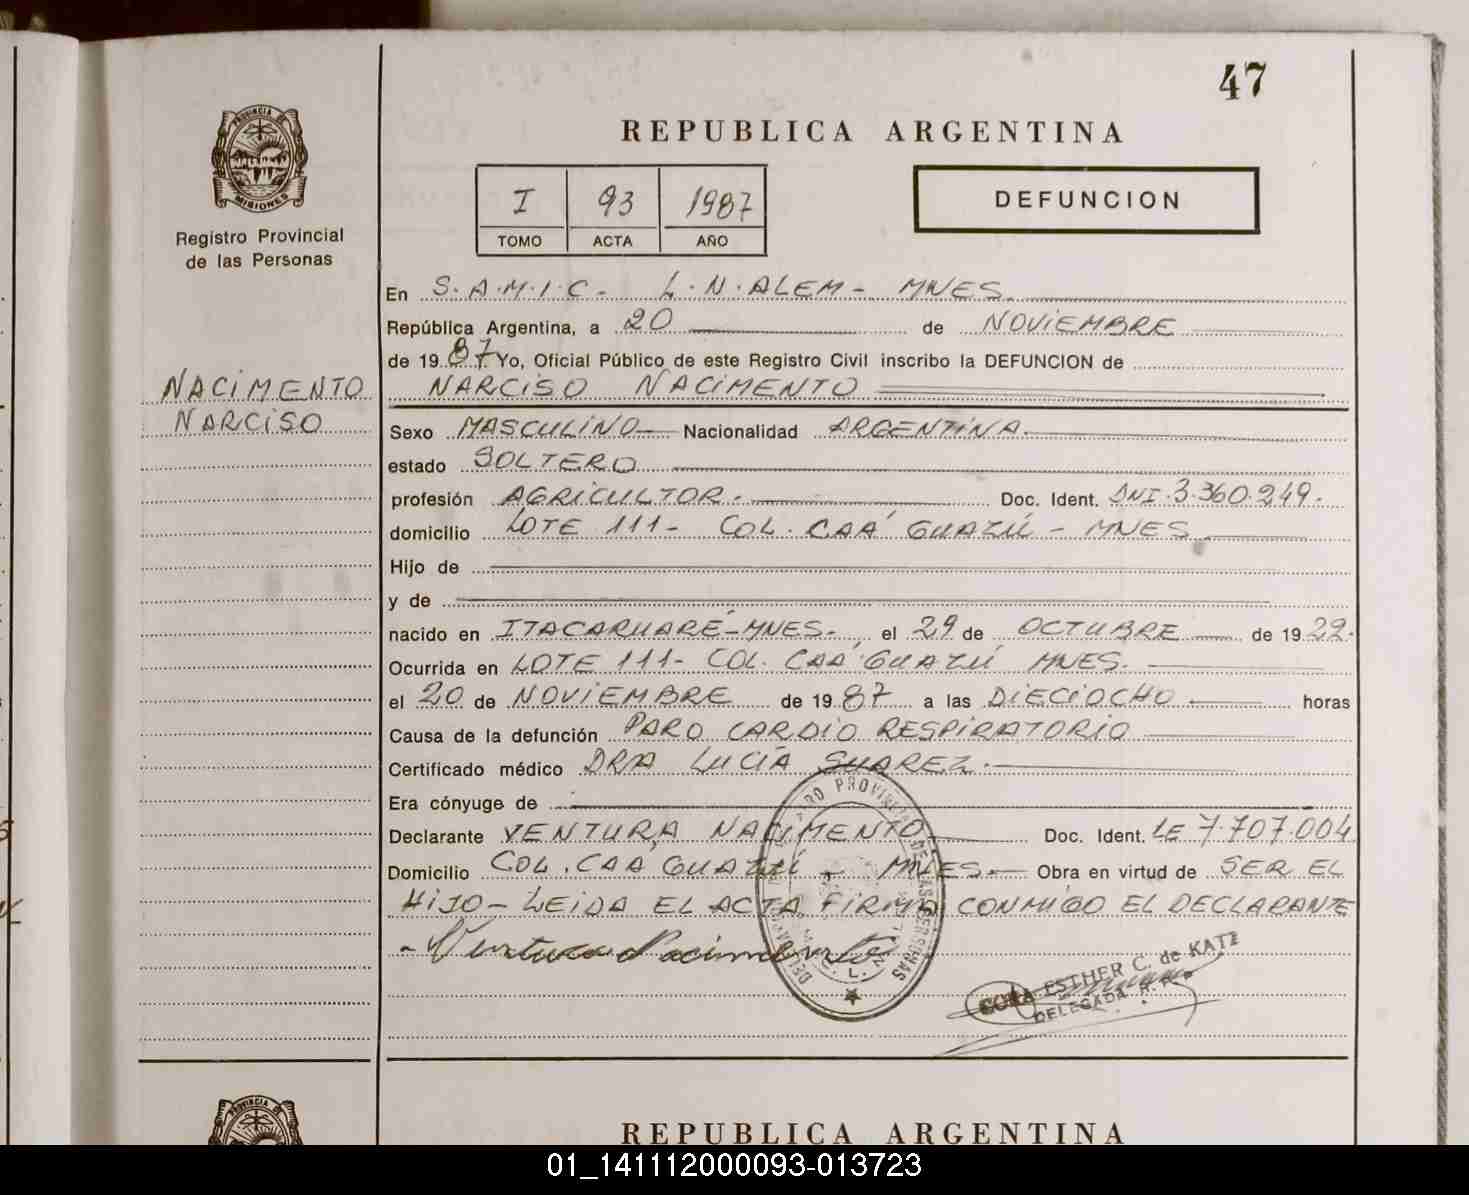 47
PROVINCIA DE
MISIONES
Registro Provincial
de las Personas
REPUBLICA ARGENTINA
I 93 1987
TOMO ACTA AÑO
DEFUNCION
NACIMENTO
NARCISO
En S.A.M.I.C.- L.N.ALEM- MNES.
República Argentina, a 20 de NOVIEMBRE
de 1987. Yo, Oficial Público de este Registro Civil inscribo la DEFUNCION de
NARCISO NACIMENTO
Sexo MASCULINO Nacionalidad ARGENTINA.
estado SOLTERO
profesión AGRICULTOR. Doc. Ident. DNI.3.360.249.
domicilio LOTE 111- COL. CAÁ GUAZÚ - MNES
Hijo de
y de
nacido en ITACARUARÉ-MNES- el 29 de OCTUBRE de 1922.
Ocurrida en LOTE 111- COL. CAÁ GUAZÚ MNES.
el 20 de NOVIEMBRE de 1987 a las DIECIOCHO horas
Causa de la defunción PARO CARDIO RESPIRATORIO
Certificado médico DRA LUCÍA SUAREZ.
Era cónyuge de
Declarante VENTURA NACIMENTO Doc. Ident. LE 7.707.004
Domicilio COL. CAÁ GUAZÚ - MNES.- Obra en virtud de SER EL
HIJO- LEIDA EL ACTA FIRMA CONMIGO EL DECLARANTE
- Ventura Nacimento
ESTHER C. de KATZ
DELEGADA R.P.P.
PROVINCIA DE
REPUBLICA ARGENTINA
01_141112000093-013723